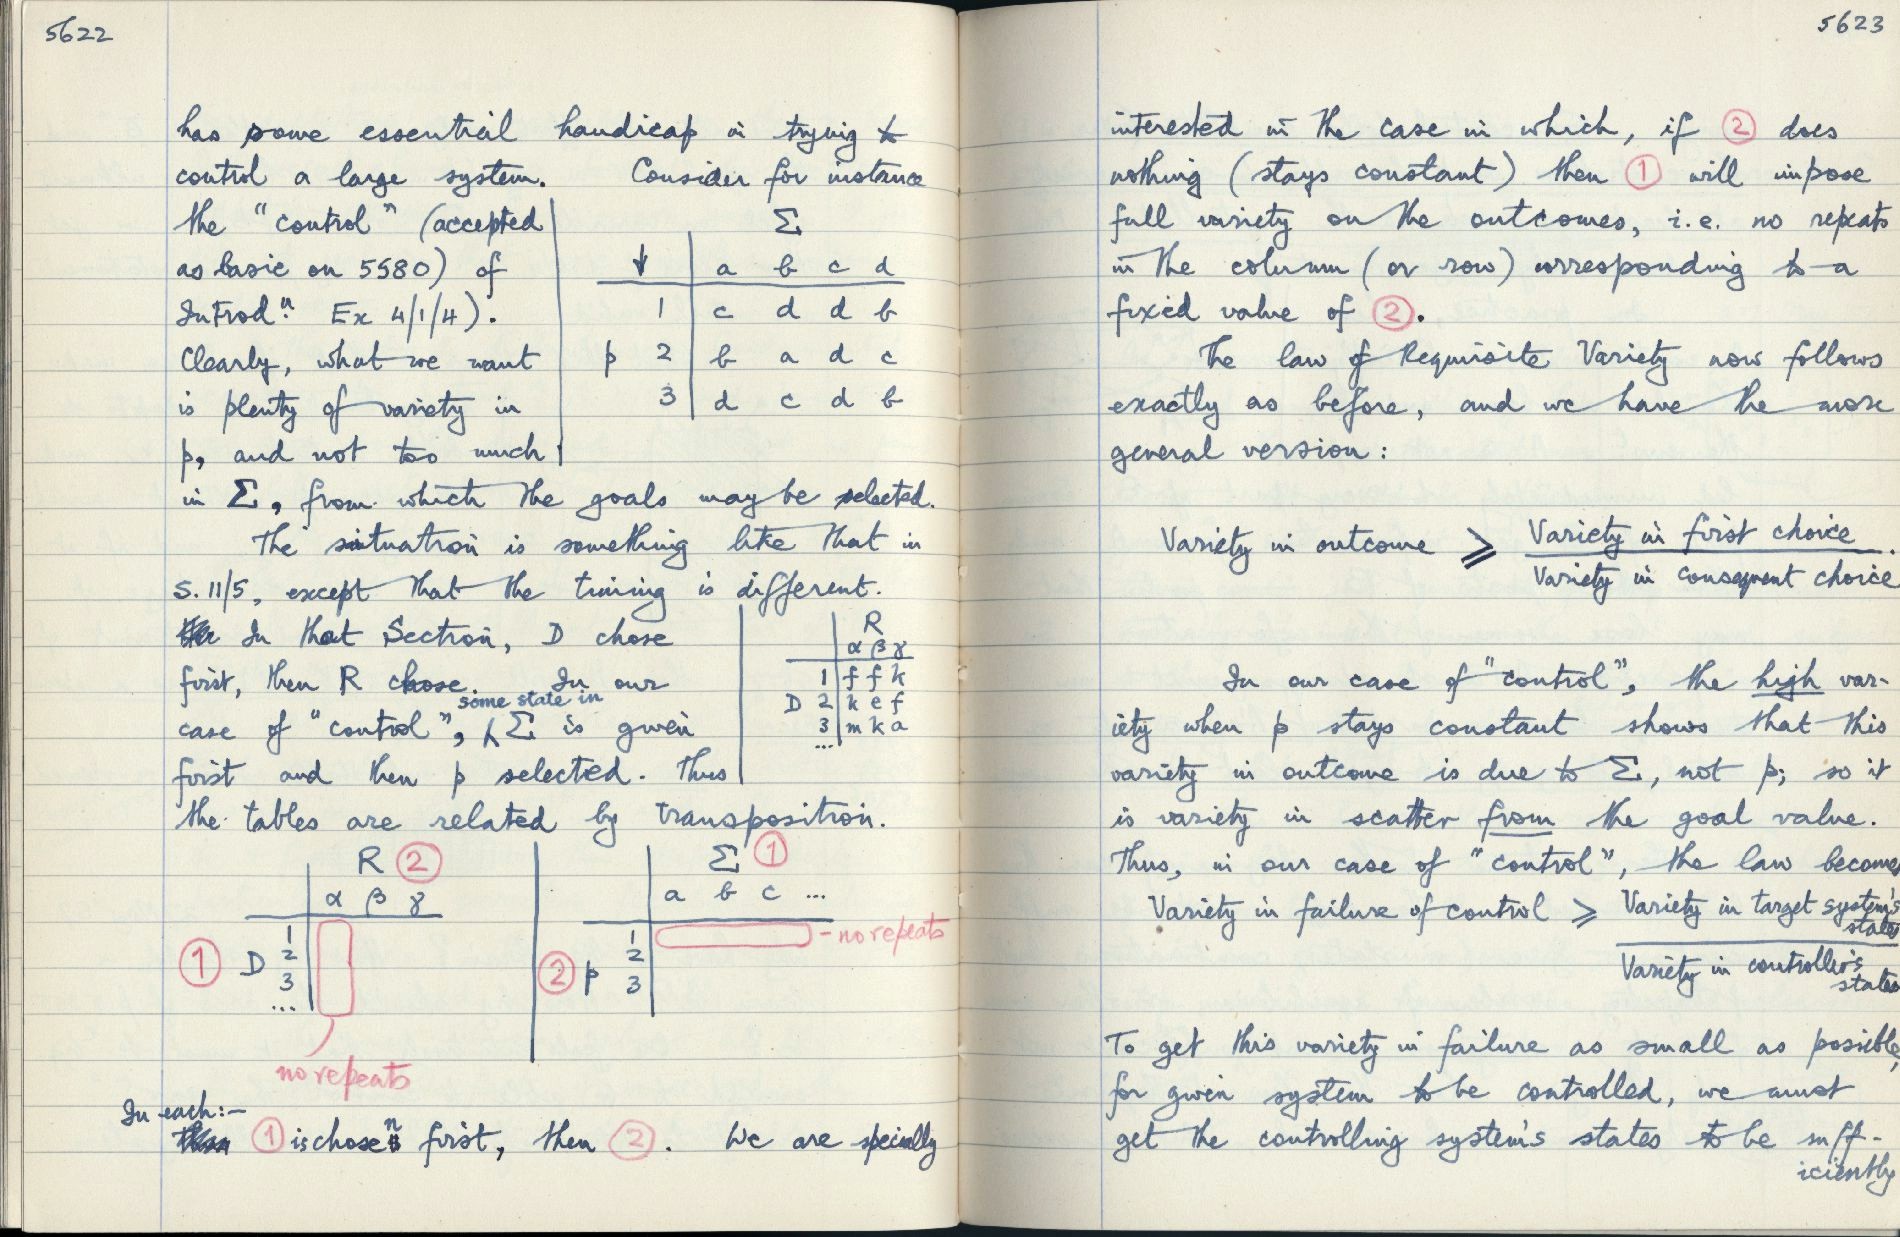 5622
has some essential handicap in trying to
control a large system. Consider for instance
the "control" (accepted
as basic on 5580) of
Introdⁿ. Ex 4/1/4).
Clearly, what we want
is plenty of variety in
p, and not too much
Σ
↓ a b c d
1 c d d b
p 2 b a d c
3 d c d b
in Σ, from which the goals may be selected.
The situation is something like that in
S. 11/5, except that the timing is different.
In that Section, D chose
first, then R chose. In our
some state in
case of "control", Σ is given
first and then p selected. Thus
R
α β γ
1 f f k
D 2 k e f
3 m k a
...
the tables are related by transposition.
R ②
α β γ
1
① D 2
3
...
no repeats
Σ ①
a b c ...
1 - no repeats
② p 2
3
In each:-
① is chosen first, then ②. We are specially
5623
interested in the case in which, if ② does
nothing (stays constant) then ① will impose
full variety on the outcomes, i.e. no repeats
in the column (or row) corresponding to a
fixed value of ②.
The law of Requisite Variety now follows
exactly as before, and we have the more
general version:
Variety in outcome ⩾ Variety in first choice.
Variety in consequent choice
In our case of "control", the high var-
iety when p stays constant shows that this
variety in outcome is due to Σ, not p; so it
is variety in scatter from the goal value.
Thus, in our case of "control", the law becomes
Variety in failure of control ⩾ Variety in target system's
states
Variety in controller's
states
To get this variety in failure as small as possible,
for given system to be controlled, we must
get the controlling system's states to be suff-
iciently